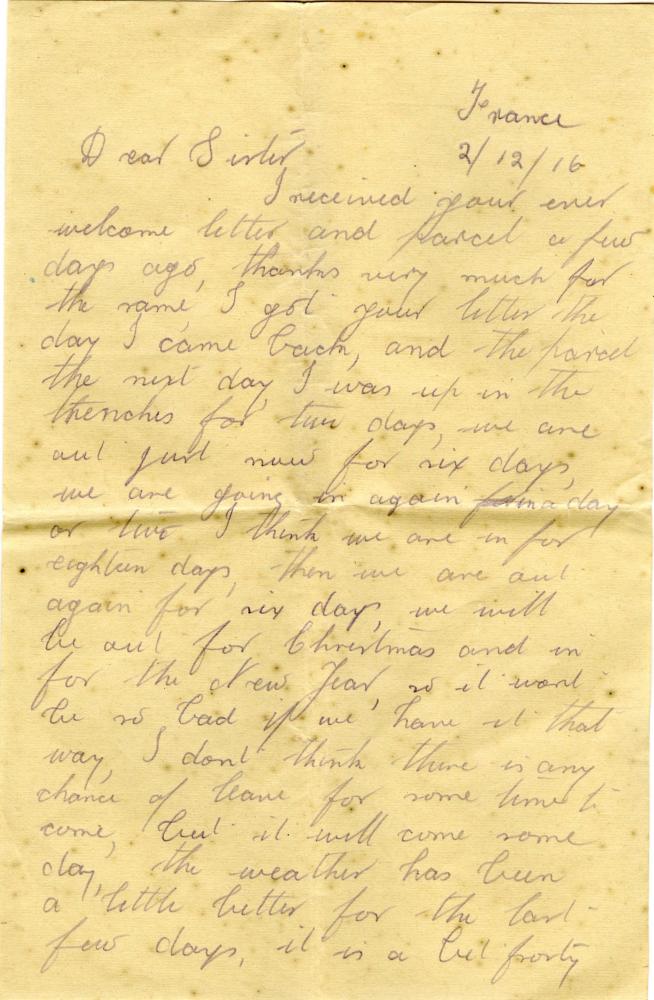 France
Dear Sister 2/12/16
I received your ever
welcome letter and parcel a few
days ago, thanks very much for
the same, I got your letter the
day I came back, and the parcel
the next day, I was up in the
thenches for two days, we are
out just now for six days,
we are going in again in a day
or two I think we are in for
eighteen days, then we are out
again for six days, we will
be out for Christmas and in
for the New Year, so it wont
be so bad if we have it that
way, I dont think there is any
chance of leave for some time to
come, but it will come some
day, the weather has been
a little better for the last
few days, it is a bit frosty